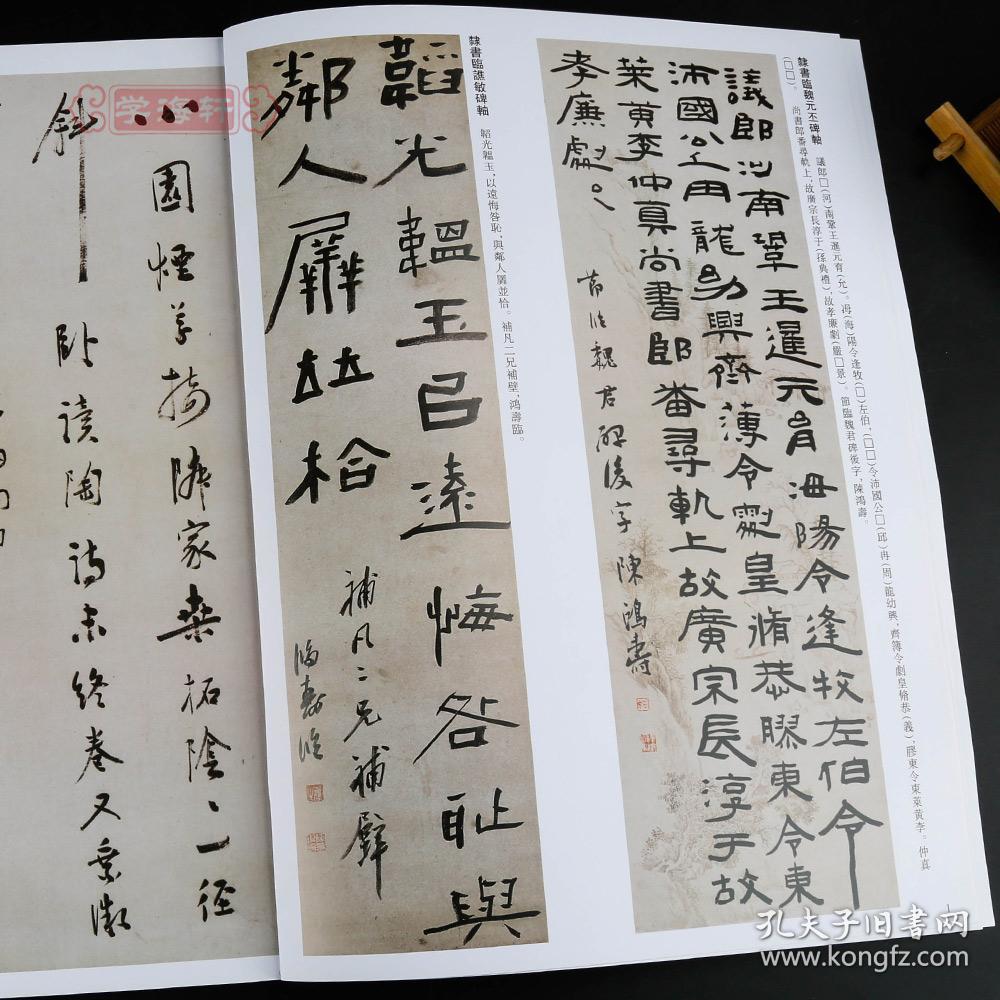 隸書臨魏元丕碑軸
議郎□(河)南鞏王暹元育(允)。海(海)陽令逢牧(□)左伯,(□□)令沛國公□(邱)冉(周)龍幼興,齊簿令劇皇脩恭(義),膠東令東萊黃李。仲真
(□□)。尚書郎番尋軌上,故廣宗長淳于(孫典禮),故孝廉劇(嚴□景)。節臨魏君碑後字,陳鴻壽。
議郎河南鞏王暹元育海陽令逢牧左伯令
沛國公丘冉龍幼興齊薄令劇皇脩恭膠東令東
萊黃李仲真尚書郎番尋軌上故廣宗長淳于故
孝廉劇
節臨魏君碑後字 陳鴻壽
隸書臨譙敏碑軸
韜光韞玉,以遠悔咎恥,與鄰人屬並恰。補凡二兄補壁,鴻壽臨。
韜光韞玉㠯遠悔咎恥與
鄰人屏並柗
補凡二兄補壁
鴻壽臨
學海軒
園煙草接鄰家桑柘陰〻一徑
斜 臥讀陶詩未終卷又乘微
孔夫子旧书网